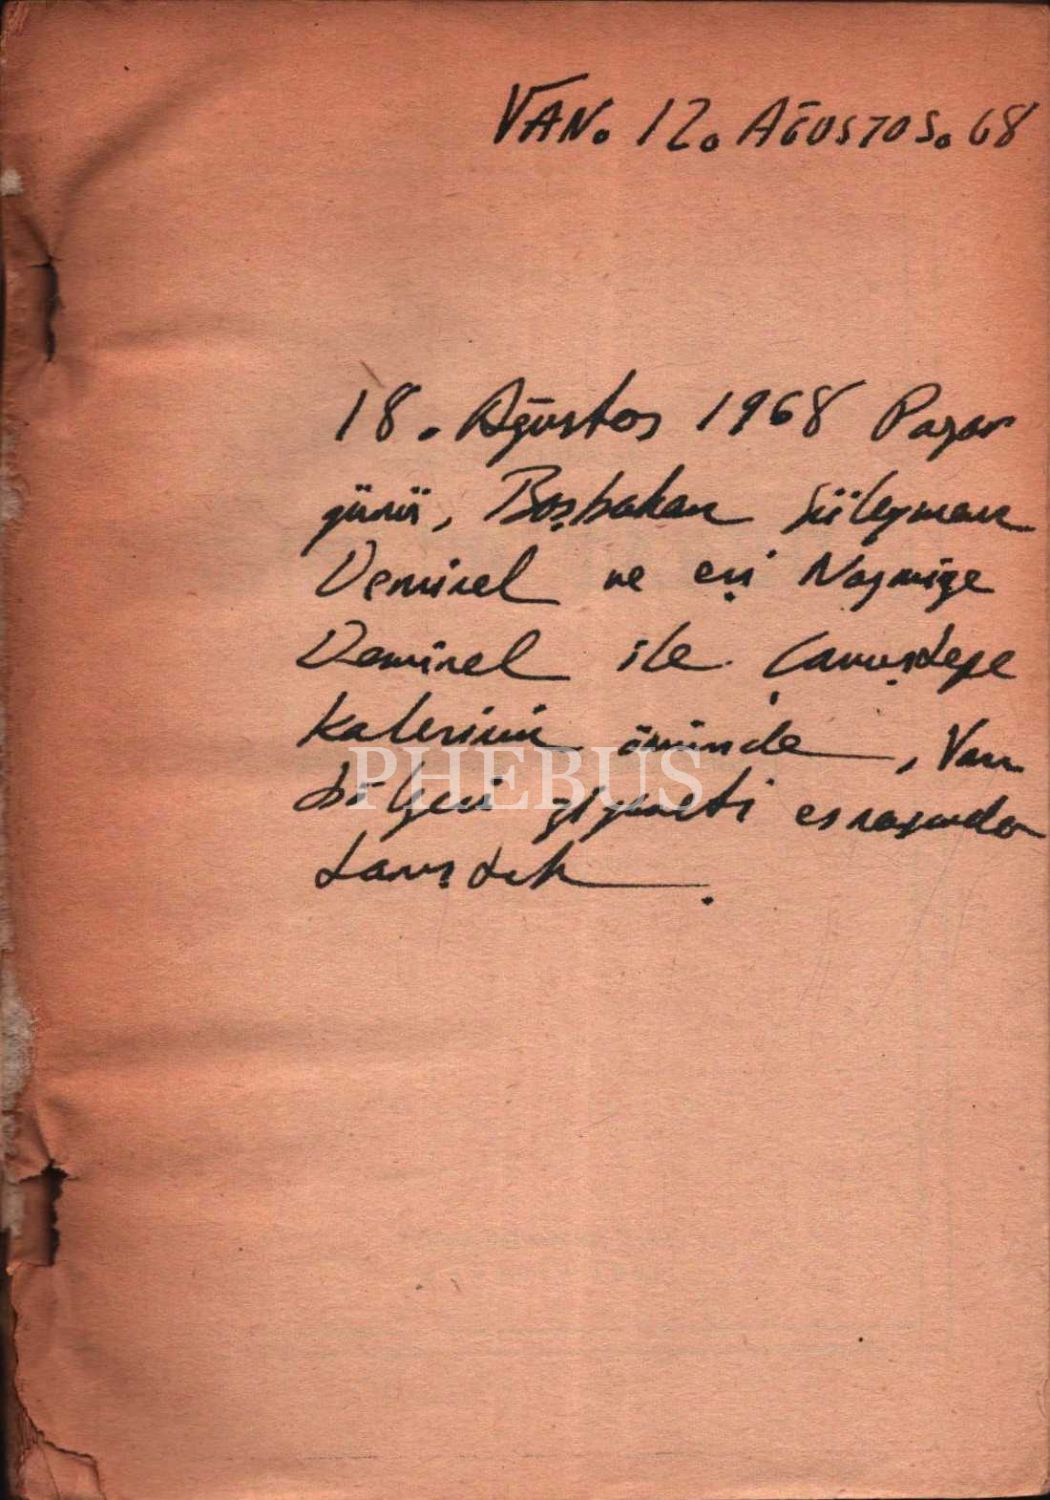 VAN. 12. AĞUSTOS. 68
18. Ağustos 1968 Pazar
günü, Başbakan Süleyman
Demirel ve eşi Nazmiye
Demirel ile Çavuştepe
kalesinin önünde, Van
PHEBUS
bölgesi ziyareti esnasında
tanıştık.